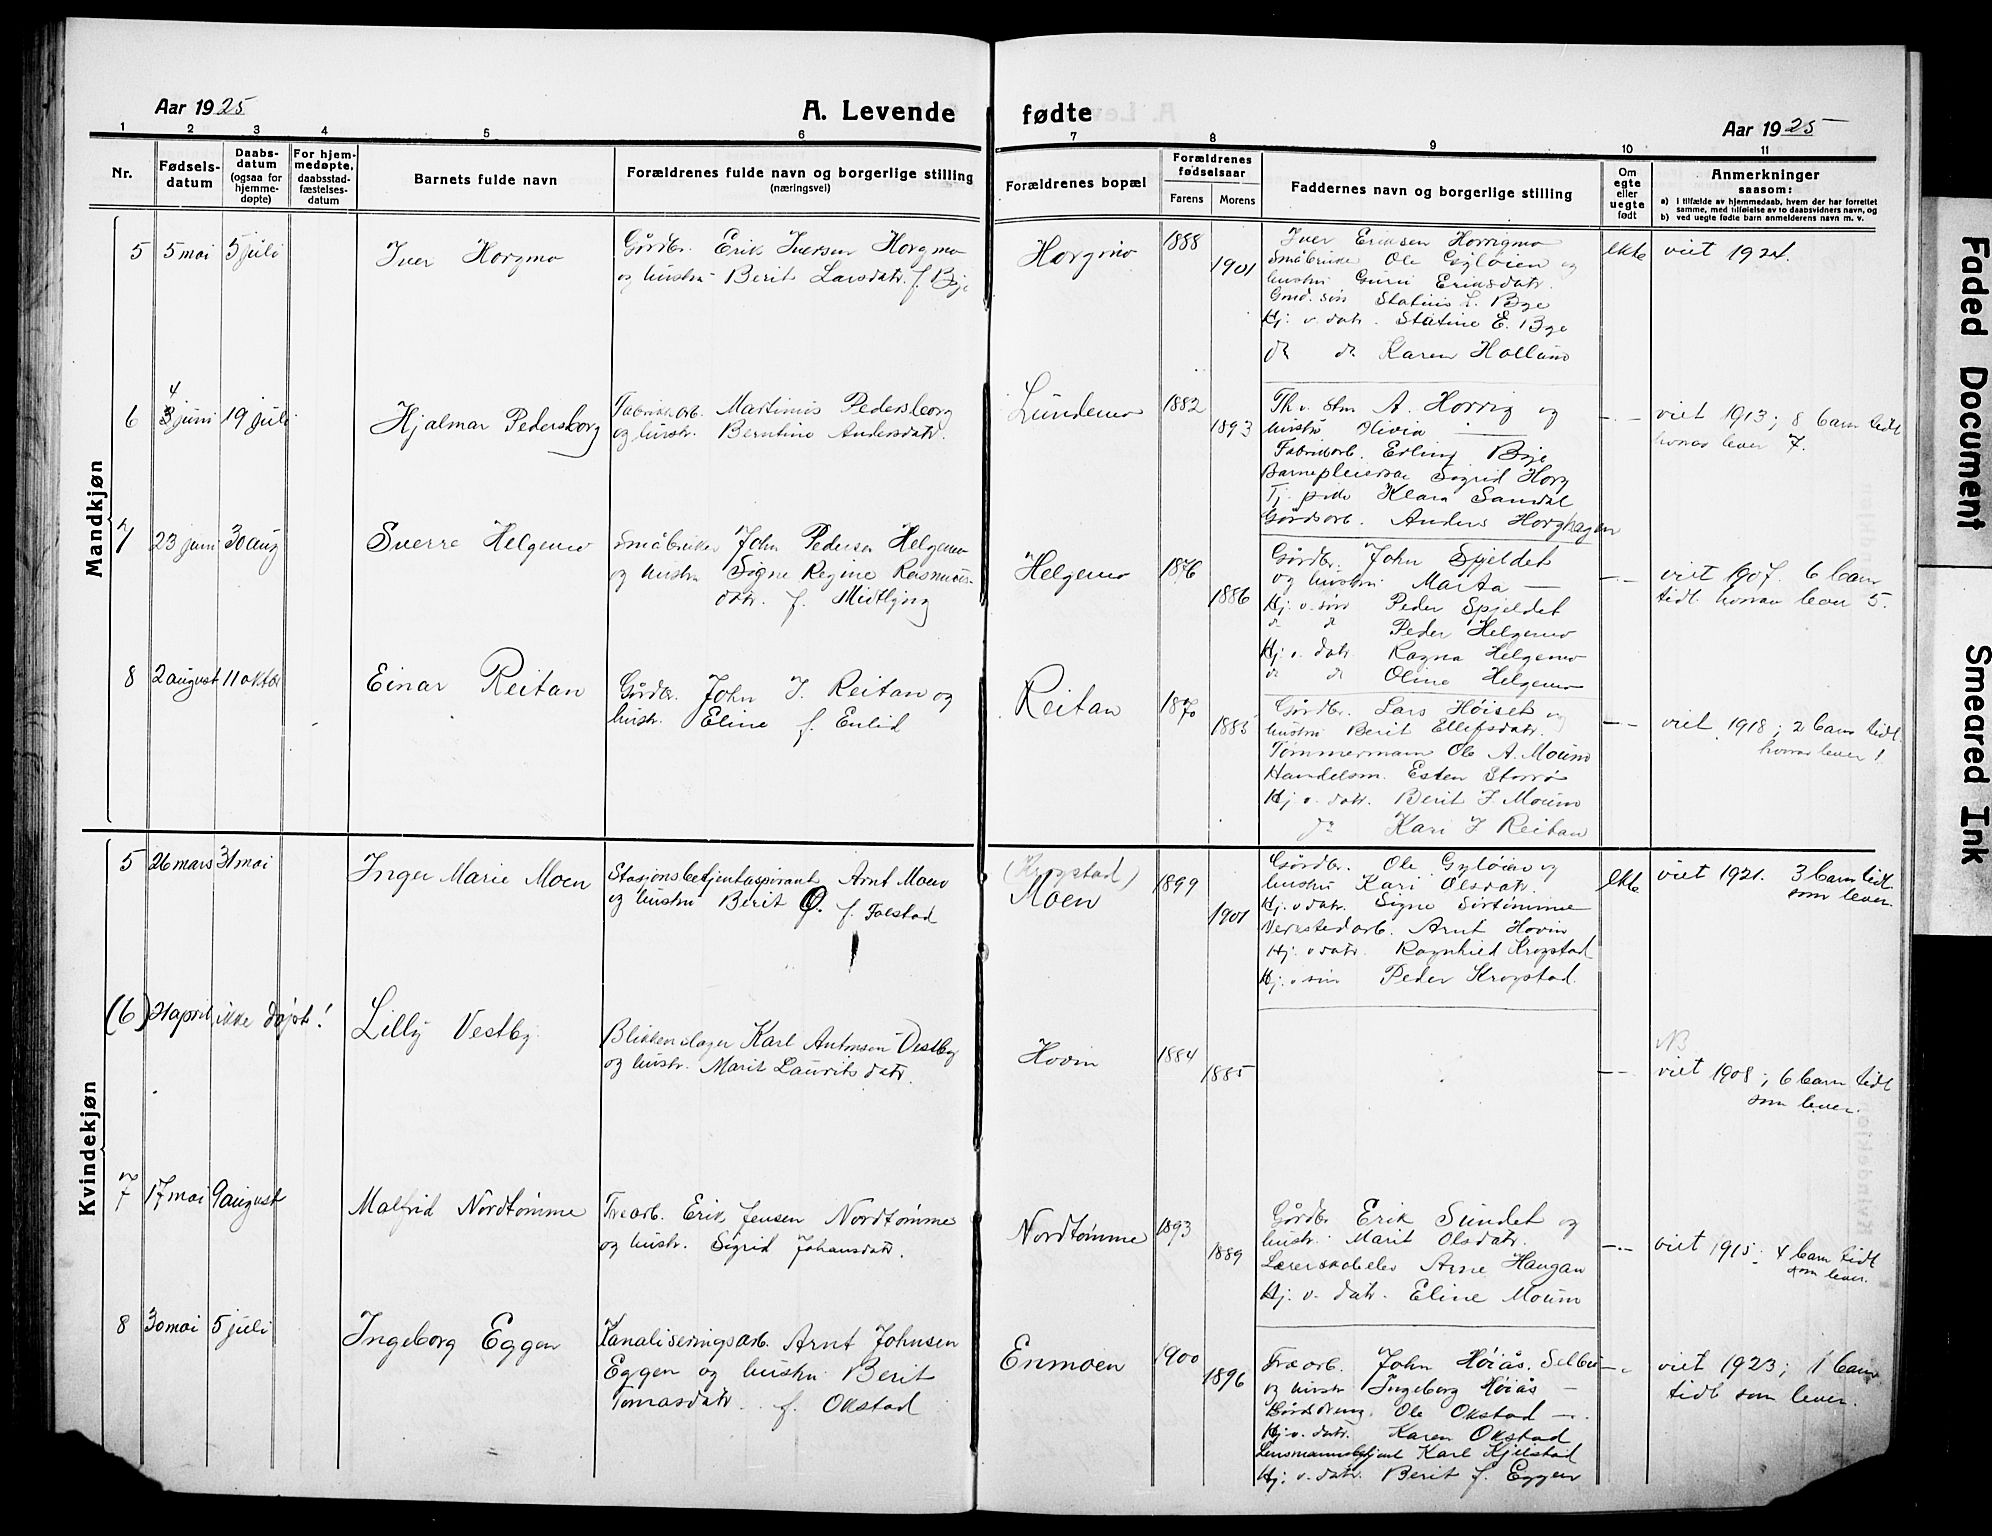 Aar 1925
A. Levende fødte
Aar 1925
1 2 3 4 5 6 7 8 9 10 11
Nr.
Fødselsdatum
Daabsdatum (ogsaa for hjemmedøpte)
For hjemmedøpte, daabsstadfæstelsesdatum
Barnets fulde navn
Forældrenes fulde navn og borgerlige stilling
(næringsvei)
Forældrenes bopæl
Forældrenes fødselsaar
Farens Morens
Faddernes navn og borgerlige stilling
Om egte eller uegte født
Anmerkninger
saasom:
a) i tilfælde av hjemmedaab, hvem der har forrettet samme, med tilføielse av to daabsvidners navn, og
b) ved uegte fødte barn anmelderens navn m. v.
Mandkjøn
5 5 mai 5 juli
Iver Horgmo
Gårdbr. Erik Iversen Horgmo
og hustru Berit Larsdatr. f. Bye
Horgmo
1888
1901
Iver Eriksen Horrigmo
Småbruker Ole Gyløien og
hustru Guru Eriksdatr.
Gmd. søn Statius L. Bye
Hj. v. datr. Statine E. Bye
do do Karen Hollum
ekte
viet 1924.
6 4 3 juni 19 juli
Hjalmar Pedersborg
Fabrikkarb. Martinus Pedersborg
og hustr. Berntine Andersdatr.
Lundemo
1882
1893
A. Horrig og
hustru Olivia
Fabrikarb. Erling Bye
Barnepleierske Sigrid Horg
Tj. pike Klara Sandal
Gårdsarb. Anders Horghagen
- -
viet 1913; 8 barn tidl
hvorav lever 7.
7 23 juni 30 aug
Sverre Helgemo
Småbruker John Pedersen Helgemo
og hustru Signe Regine Rasmus-
datr. f. Midtbjørg
Helgemo
1876
1886
Gårdbr. John Spjeldet
og hustru Marta —
Hj. v. søn Peder Spjeldet
do do Peder Helgemo
Hj. v. datr. Ragna Helgemo
do do Oline Helgemo
- -
viet 1907. 6 barn
tidl. hvorav lever 5.
8 2 august 11 oktbr
Einar Reitan
Gårdbr. John J. Reitan og
hustr. Eline f. Enlid
Reitan
1870
1885
Gårdbr. Lars Høiset og
hustru Berit Ellefsdatr.
Tømmermann Ole A. Moum
Handelsm. Esten Storrø
Hj. v. datr. Berit J. Moum
do Kari J Reitan
- -
viet 1918; 2 barn tidl.
hvorav lever 1
Kvindekjøn
5 26 mars 31 mai
Inger Marie Moen
Stasjonsbetjentaspirant Arnt Moen
og hustru Berit O. f. Folstad
(Krogstad)
Moen
1899
1901
Gårdbr. Ole Gyløien og
hustru Kari Olsdatr.
Hj. v datr. Signe Sørtømme
Verkstedarb. Arnt Hovin
Hj. v datr. Ragnhild Krogstad
Hj. v søn Peder Krogstad.
ekte
viet 1921. 3 barn tidl.
som lever.
(6) 21 april ikke døpt!
Lilly Vestby
Blikkenslager Karl Antonsen Vestby
og hustr. Marit Lauritsdatr.
Hovin
1884
1885
- -
NB
viet 1908; 6 barn tidl
som lever.
7 17 mai 9 august
Malfrid Nordtømme
Trearb. Erik Jensen Nordtømme
og hustr. Sigrid Johansdatr.
Nordtømme
1893
1889
Gårdbr Erik Sundet og
hustr. Marit Olsdatr.
Lærerskoleelev Arne Haugan
Hj. v. datr. Eline Moum
- -
viet 1915. 4 barn tidl
som lever.
8 30 mai 5 juli
Ingeborg Eggen
Kanaliseringsarb. Arnt Johnsen
Eggen og hustru Berit
Tomasdatr. f. Okstad
Enmoen
1900
1896
Træarb. John Høiås. Selbu
og hustr Ingeborg Høiås —
Gårddreng. Ole Okstad —
Hj. v. datr. Karen Okstad
Lensmannsbetjent Karl Kjelstad
Hj. v. datr. Berit J. Eggen
- -
viet 1923; 1 barn
tidl som lever.
Faded Document
Smeared Ink